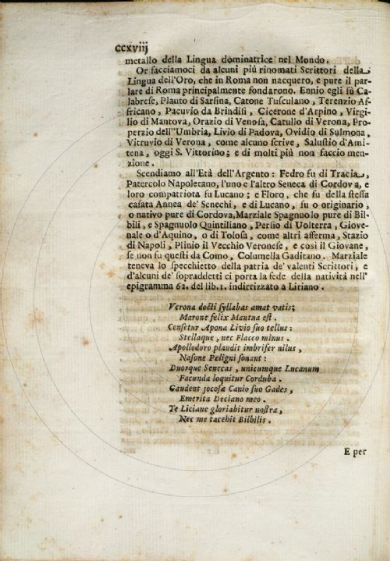 ccxviij
metallo della Lingua dominatrice nel Mondo.
Or facciamoci da alcuni più rinomati Scrittori della
Lingua dell'Oro, che in Roma non nacquero, e pure il par-
lare di Roma principalmente fondarono. Ennio egli fu Ca-
labrese, Plauto di Sarsina, Catone Tusculano, Terenzio Af-
fricano, Pacuvio da Brindisi, Cicerone d'Arpino, Virgi-
lio di Mantova, Orazio di Venosa, Catullo di Verona, Pro-
perzio dell'Umbria, Livio di Padova, Ovidio di Sulmona,
Vitruvio di Verona, come alcuno scrive, Salustio d'Ami-
tena, oggi S. Vittorino; e di molti più non faccio men-
zione.
Scendiamo all'Età dell'Argento: Fedro fu di Tracia,
Patercolo Napoletano, l'uno e l'altro Seneca di Cordova, e
loro compatriota fu Lucano; e Floro, che fu della stessa
casata Annea de' Senechi, e di Lucano, fu o originario,
o nativo pure di Cordova, Marziale Spagnuolo pure di Bil-
bili, e Spagnuolo Quintiliano, Persio di Volterra, Giove-
nale o d'Aquino, o di Tolosa, come altri afferma, Stazio
di Napoli, Plinio il Vecchio Veronese, e così il Giovane,
se non fu questi da Como, Columella Gaditano. Marziale
teneva lo specchietto della patria de' valenti Scrittori, e
d'alcuni de' sopraddetti ci porta la fede della natività nell'
epigramma 62. del lib. 1. indirizzato a Liriano.
Verona docti syllabas amat vatis;
Marone felix Mantua est.
Censetur Apona Livio suo tellus:
Stellaque, nec Flacco minus.
Apollodoro plaudit imbrifer nilus,
Nasone Peligni sonant:
Duosque Senecas, unicumque Lucanum
Facunda loquitur Corduba.
Gaudent jocosæ Canio suo Gades,
Emerita Deciano meo.
Te Liciane gloriabitur nostra,
Nec me tacebit Bilbilis.
E per